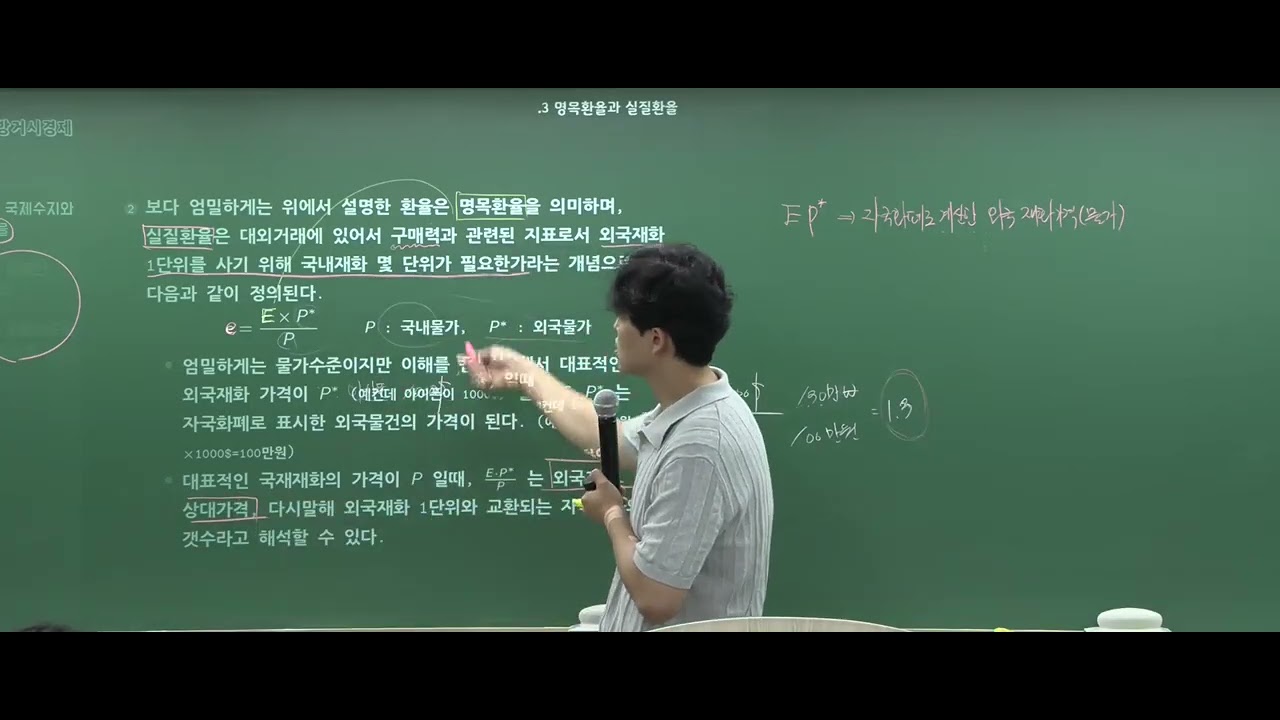 .3 명목환율과 실질환율
방거시경제
국제수지와
② 보다 엄밀하게는 위에서 설명한 환율은 명목환율을 의미하며,
실질환율은 대외거래에 있어서 구매력과 관련된 지표로서 외국재화
1단위를 사기 위해 국내재화 몇 단위가 필요한가라는 개념으로
다음과 같이 정의된다.
e = E × P* / P    P : 국내물가,    P* : 외국물가
엄밀하게는 물가수준이지만 이해를 대표적인
외국재화 가격이 P* (예컨데 아이폰이 1000$) 는
자국화폐로 표시한 외국물건의 가격이 된다.
×1000$=100만원)
대표적인 국재재화의 가격이 P 일때, E·P*/P 는 외국
상대가격, 다시말해 외국재화 1단위와 교환되는
갯수라고 해석할 수 있다.
EP* ⇒ 자국화폐로 계산한 외국 재화가격(물가)
130만원
100만원
= 1.3